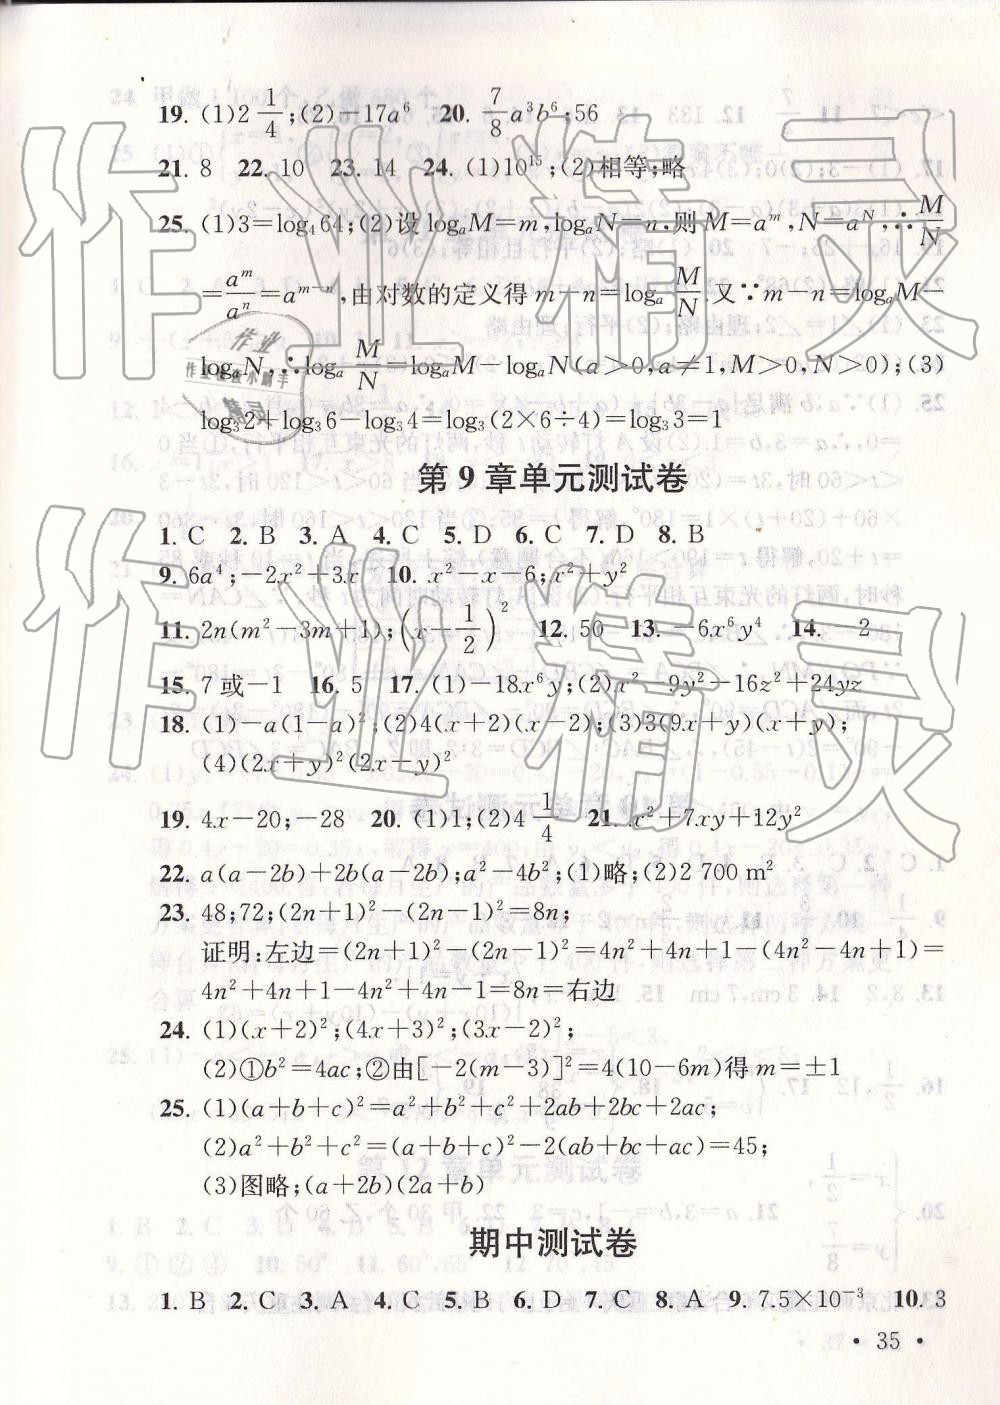 19. (1)2 1/4;(2)-17a⁶ 20. 7/8 a³b⁶;56
21. 8 22. 10 23. 14 24. (1)10¹⁵;(2)相等;略
25. (1)3=log₄64;(2)设 logₐM=m,logₐN=n.则 M=aᵐ,N=aᴺ,∴M/N
=aᵐ/aⁿ=aᵐ⁻ⁿ,由对数的定义得 m-n=logₐ M/N.又∵m-n=logₐM-
logₐN,∴logₐ M/N=logₐM-logₐN(a>0,a≠1,M>0,N>0);(3)
log₃2+log₃6-log₃4=log₃(2×6÷4)=log₃3=1
第9章单元测试卷
1. C 2. B 3. A 4. C 5. D 6. C 7. D 8. B
9. 6a⁴;-2x²+3x 10. x²-x-6;x²+y²
11. 2n(m²-3m+1);(x-1/2)² 12. 50 13. -6x⁶y⁴ 14. -2
15. 7或-1 16. 5 17. (1)-18x⁶y;(2)x²-9y²-16z²+24yz
18. (1)-a(1-a)²;(2)4(x+2)(x-2);(3)3(9x+y)(x+y);
(4)(2x+y)²(2x-y)²
19. 4x-20;-28 20. (1)1;(2)4 1/4 21. x²+7xy+12y²
22. a(a-2b)+2b(a-2b);a²-4b²;(1)略;(2)2 700 m²
23. 48;72;(2n+1)²-(2n-1)²=8n;
证明:左边=(2n+1)²-(2n-1)²=4n²+4n+1-(4n²-4n+1)=
4n²+4n+1-4n²+4n-1=8n=右边
24. (1)(x+2)²;(4x+3)²;(3x-2)²;
(2)①b²=4ac;②由[-2(m-3)]²=4(10-6m)得 m=±1
25. (1)(a+b+c)²=a²+b²+c²+2ab+2bc+2ac;
(2)a²+b²+c²=(a+b+c)²-2(ab+bc+ac)=45;
(3)图略;(a+2b)(2a+b)
期中测试卷
1. B 2. C 3. A 4. C 5. B 6. D 7. C 8. A 9. 7.5×10⁻³ 10. 3
• 35 •
作业精灵
作业精灵
作业
作业检查小助手
精灵